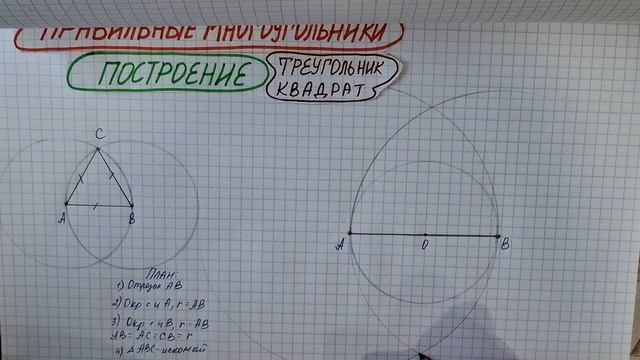 ПРАВИЛЬНЫЕ МНОГОУГОЛЬНИКИ
ПОСТРОЕНИЕ
ТРЕУГОЛЬНИК
КВАДРАТ
C
A
B
A
O
B
ПЛАН:
1) Отрезок AB
2) Окр с ц A, r = AB
3) Окр с ц B, r = AB
AB = AC = CB = r
4) Δ ABC - искомый